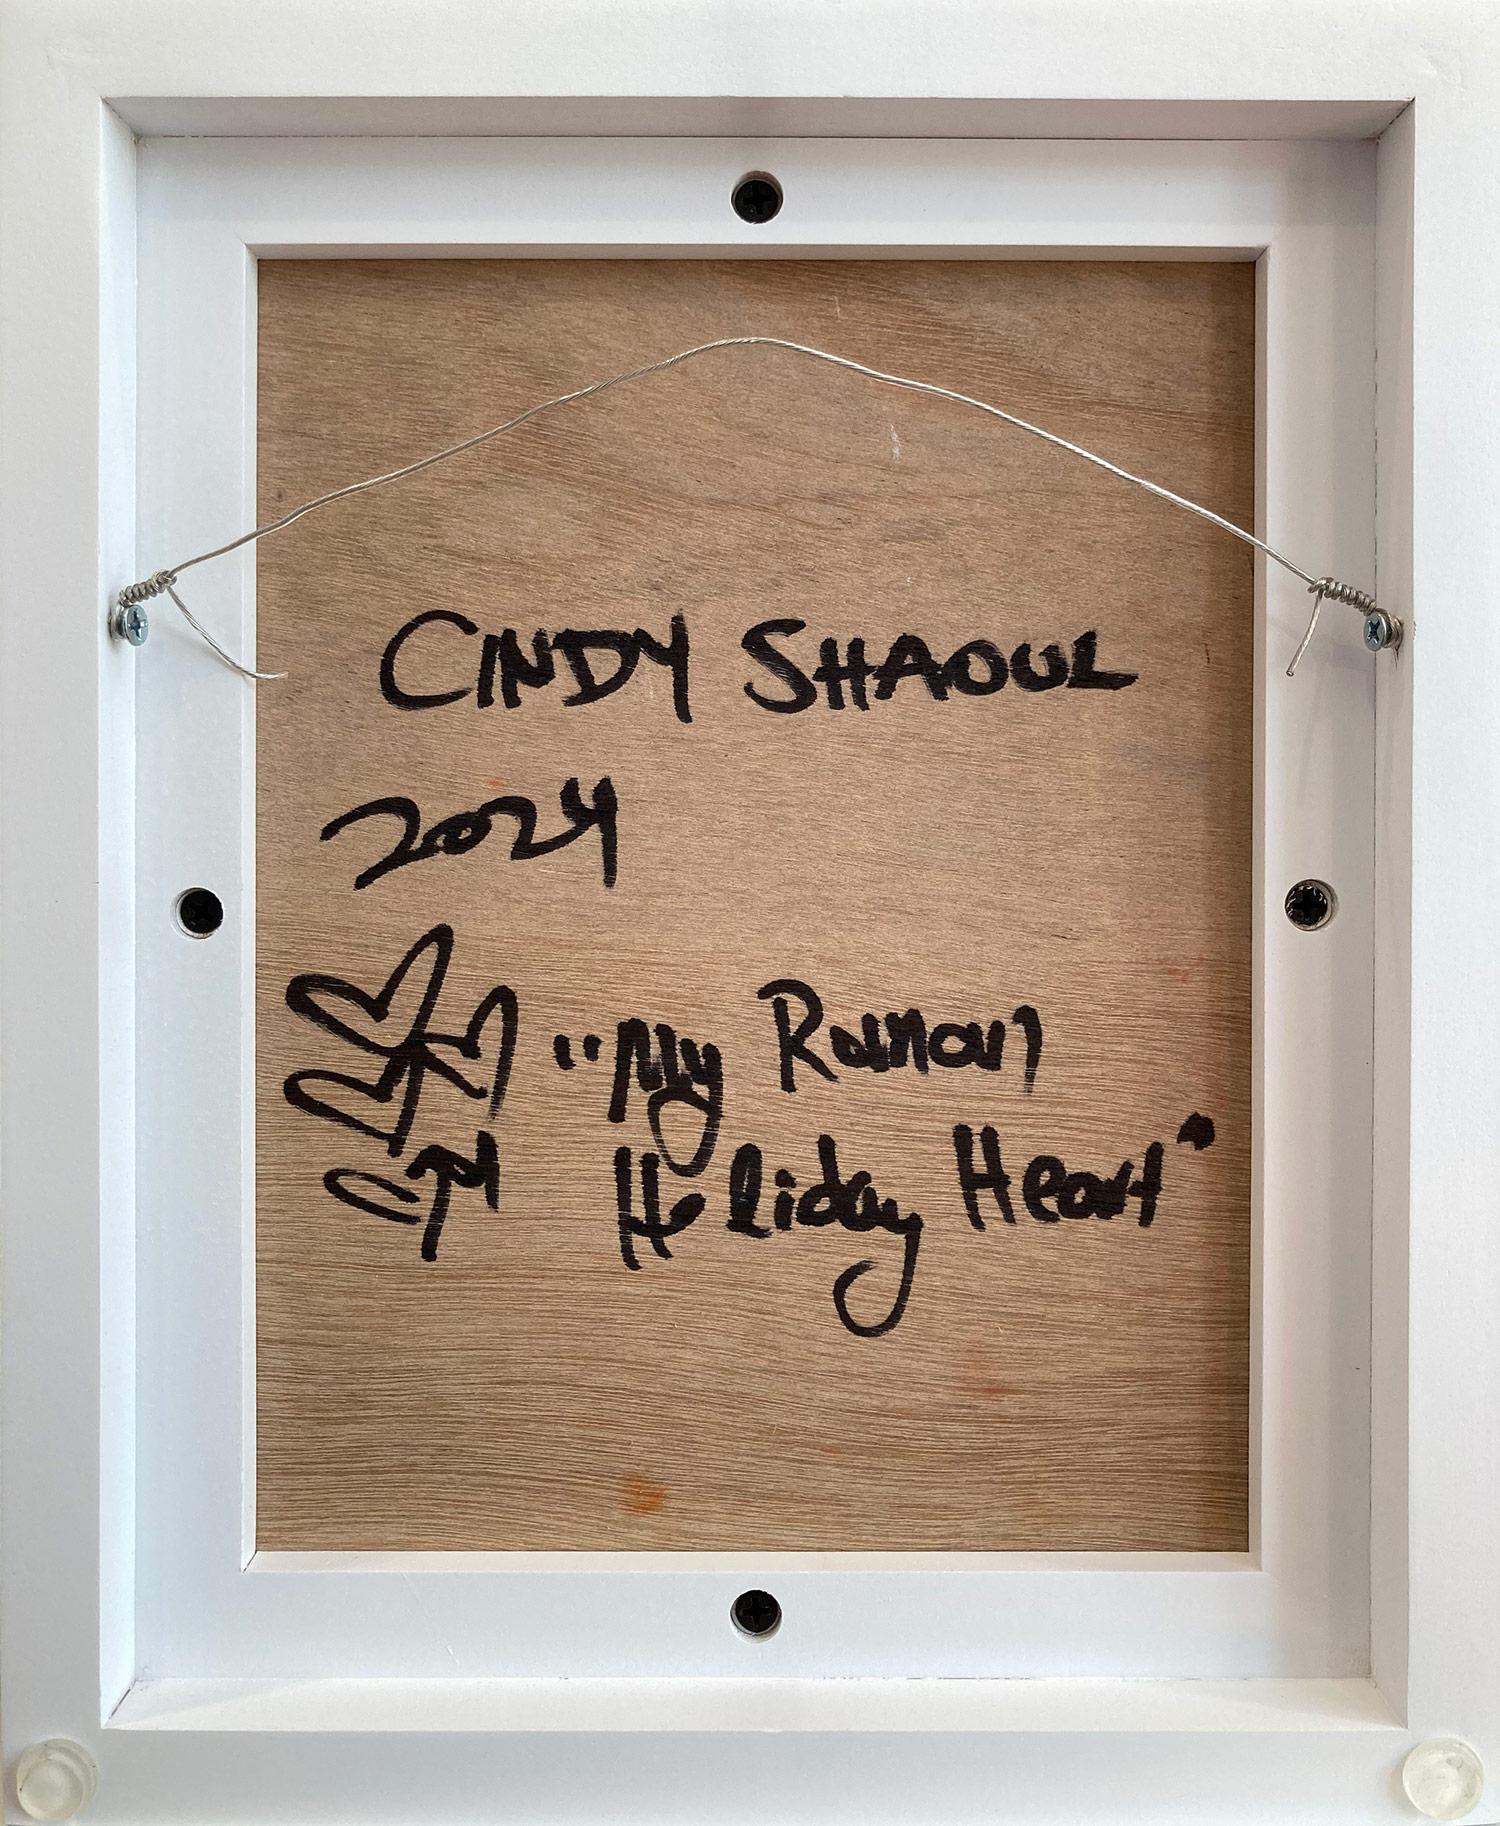 CINDY SHAOUL
2024
"My Roman
Holiday Heart"